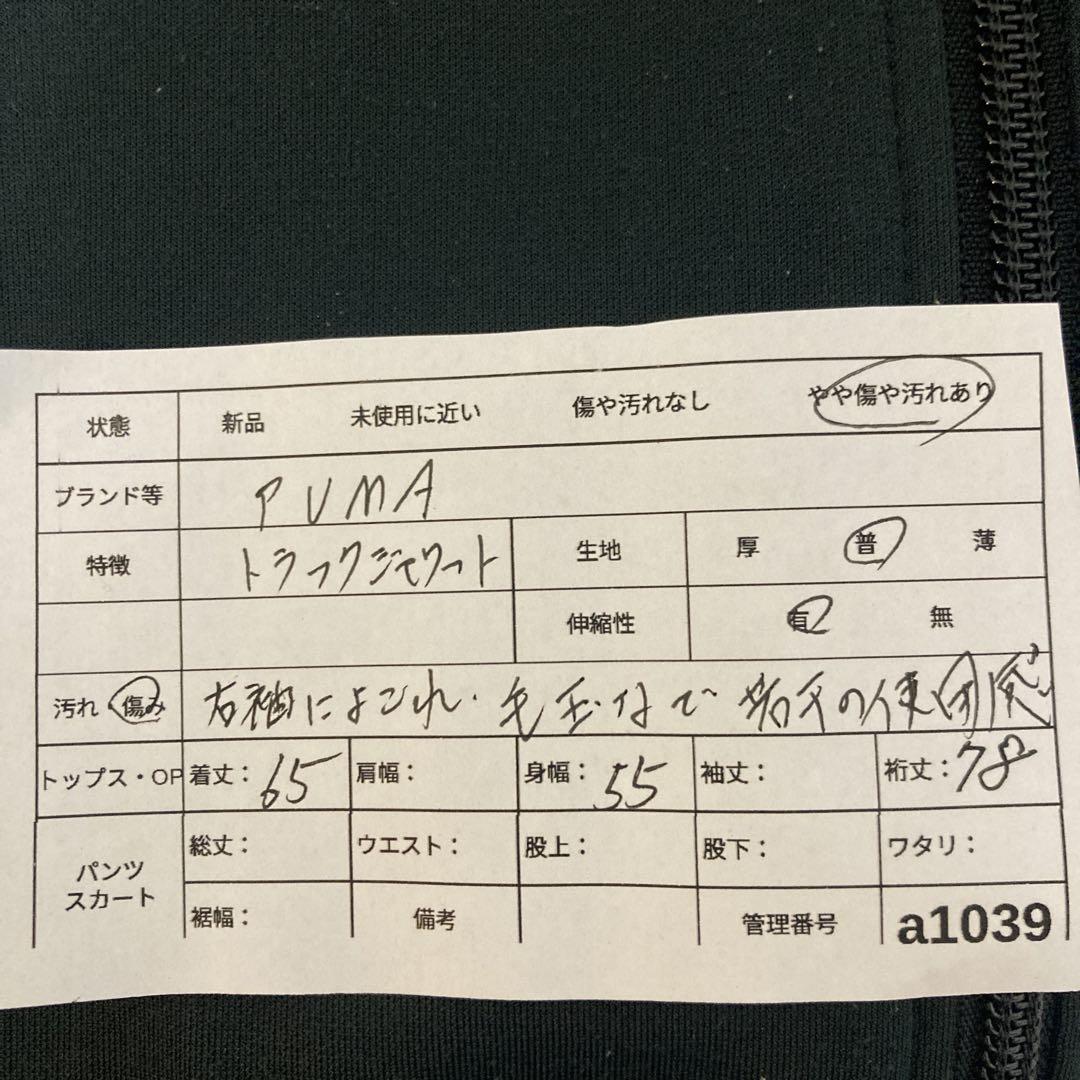 状態 新品 未使用に近い 傷や汚れなし やや傷や汚れあり
ブランド等 PUMA
特徴 トラックジャケット 生地 厚 普 薄
伸縮性 有 無
汚れ 傷み 右袖によごれ・毛玉など 若干の使用感
トップス・OP 着丈: 65 肩幅: 身幅: 55 袖丈: 裄丈: 78
パンツ スカート 総丈: ウエスト: 股上: 股下: ワタリ:
裾幅: 備考 管理番号 a1039